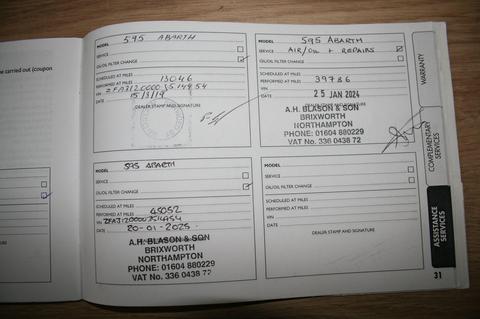 be carried out (coupon
MODEL 595 ABARTH
SERVICE
OIL/OIL FILTER CHANGE
SCHEDULED AT MILES
PERFORMED AT MILES 13046
VIN
DATE 15/3/19
DEALER STAMP AND SIGNATURE
MODEL 595 ABARTH
SERVICE AIR/OIL + REPAIRS
OIL/OIL FILTER CHANGE
SCHEDULED AT MILES
PERFORMED AT MILES 39786
VIN
DATE 25 JAN 2024
A.H. BLASON & SON
BRIXWORTH
NORTHAMPTON
PHONE: 01604 880229
VAT No. 336 0438 72
MODEL 595 ABARTH
SERVICE
OIL/OIL FILTER CHANGE
SCHEDULED AT MILES
PERFORMED AT MILES 45052
VIN
DATE 20-01-2025
A.H. BLASON & SON
BRIXWORTH
NORTHAMPTON
PHONE: 01604 880229
VAT No. 336 0438 72
MODEL
SERVICE
OIL/OIL FILTER CHANGE
SCHEDULED AT MILES
PERFORMED AT MILES
VIN
DATE
DEALER STAMP AND SIGNATURE
WARRANTY
COMPLEMENTARY
SERVICES
ASSISTANCE
SERVICES
31